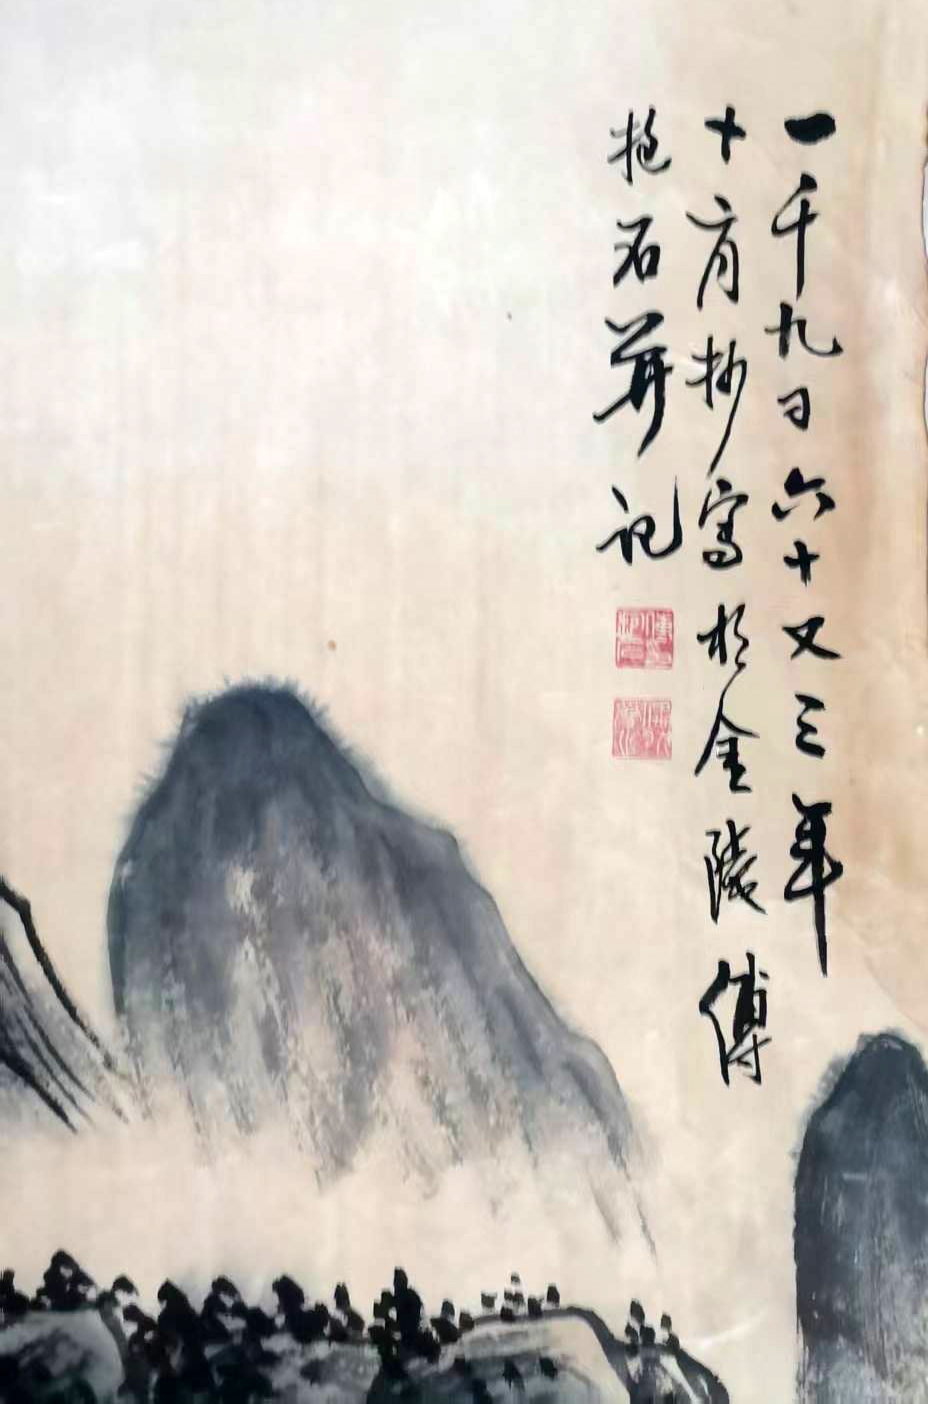 一千九百六十又三年
十月抄写於金陵傅
抱石并记